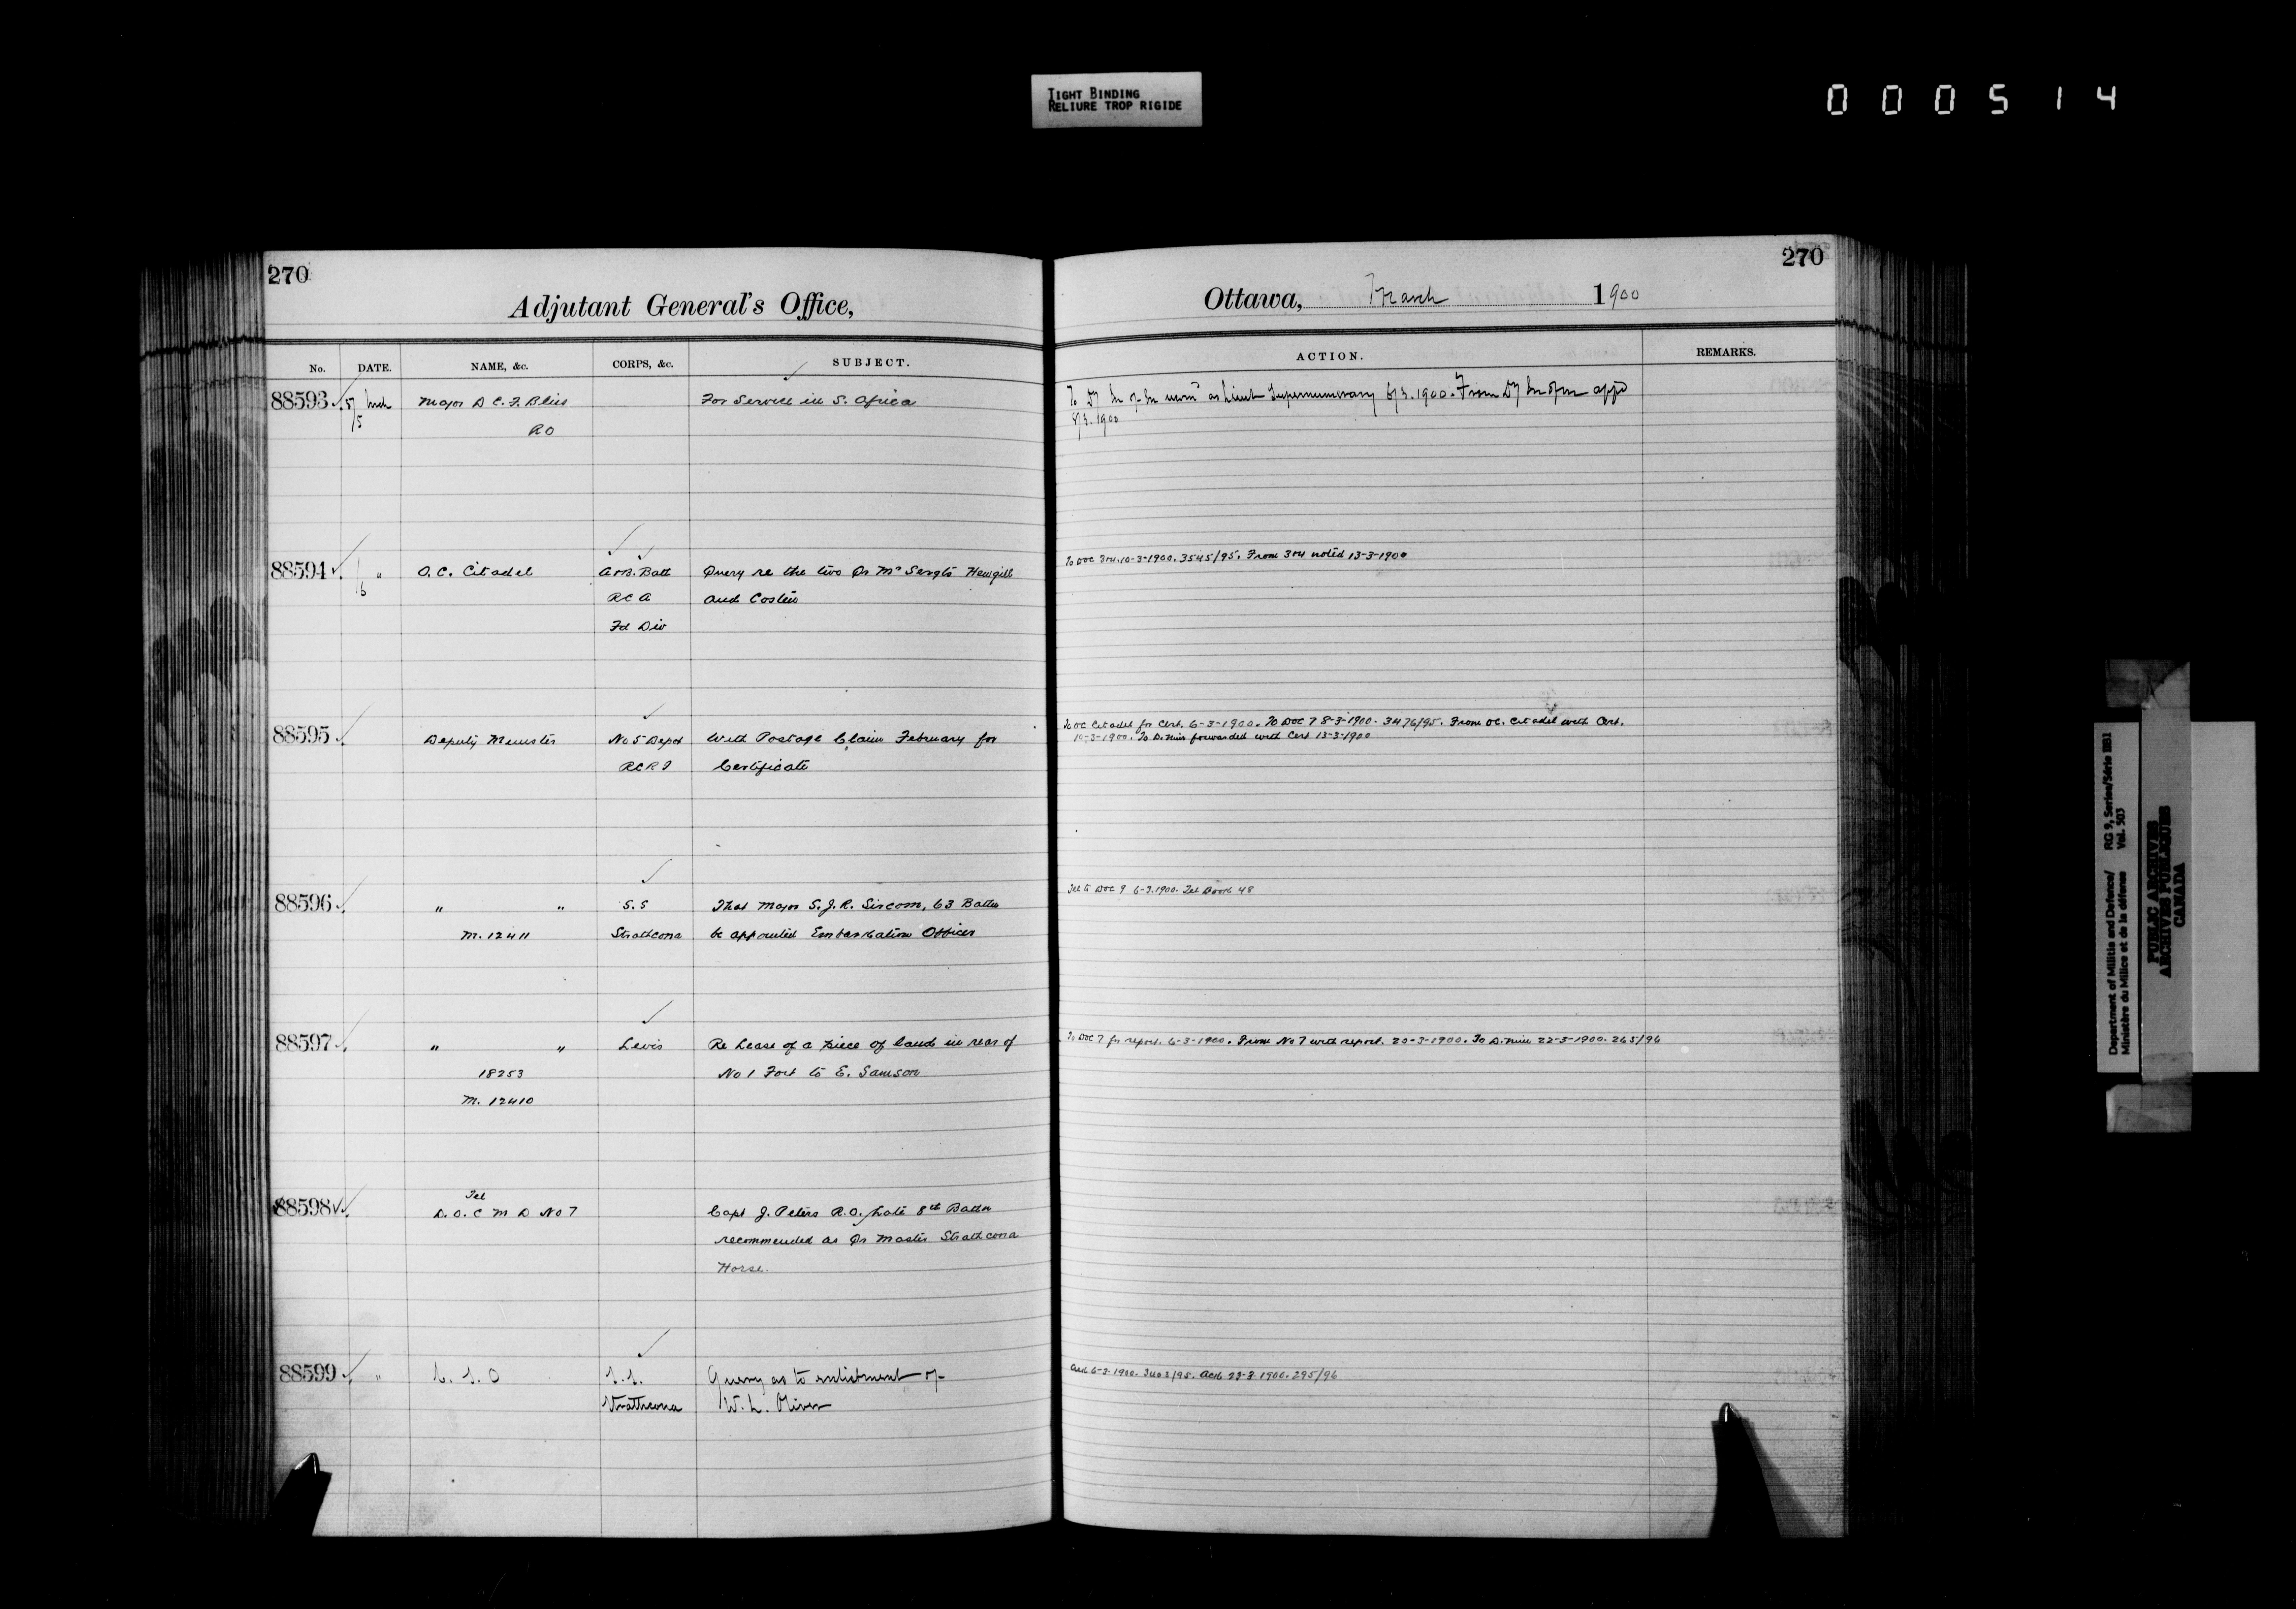 TIGHT BINDING
RELIURE TROP RIGIDE
000514
270
Adjutant General's Office,
No. DATE. NAME, &c. CORPS, &c. SUBJECT.
88593 5/5 Mch Major D C. F. Bliss For Service in S. Africa
RO
88594 /6 " O. C. Citadel A & B. Batt Query re the two Qr Mr Sergts Hewgill
RCA and Costin
Fd Div
88595 Deputy Minister No 5 Depot With Postage Claim February for
RCRI Certificate
88596 " " S. S That Major S. J. R. Sircom, 63 Battn
M. 12411 Strathcona be appointed Embarkation Officer
88597 " " Levis Re Lease of a piece of land in rear of
18253 No 1 Fort to E. Samson
M. 12410
Tel
88598 D. O. C M D No 7 Capt J. Peters R.O. late 8th Battn
recommended as Qr Master Strathcona
Horse.
88599 " C. S. O S. S. Query as to enlistment of
Strathcona W. L. Oliver
270
Ottawa, March 1900
ACTION. REMARKS.
To Dy Mr of Mr as Lieut Supernumerary 6/3.1900. From Dy Mr of Mr appd
8/3.1900
To DOC 3&4. 10-3-1900. 3545/95. From 3&4 noted 13-3-1900
To OC Citadel for Cert. 6-3-1900. To DOC 7 8-3-1900. 3476/95. From OC. Citadel with Cert.
10-3-1900. To D. Min forwarded with Cert 13-3-1900
Tel to DOC 9 6-3.1900. Tel Book 48
To DOC 7 for report. 6-3-1900. From No 7 with report. 20-3-1900. To D. Min 22-3-1900. 265/96
Ackd 6-3-1900. 3403/95. Ackd 23-3-1900. 295/96
Department of Militia and Defence/ RG 9, Series/Série IIB1
Ministère du Milice et de la défense Vol. 503
PUBLIC ARCHIVES
ARCHIVES PUBLIQUES
CANADA